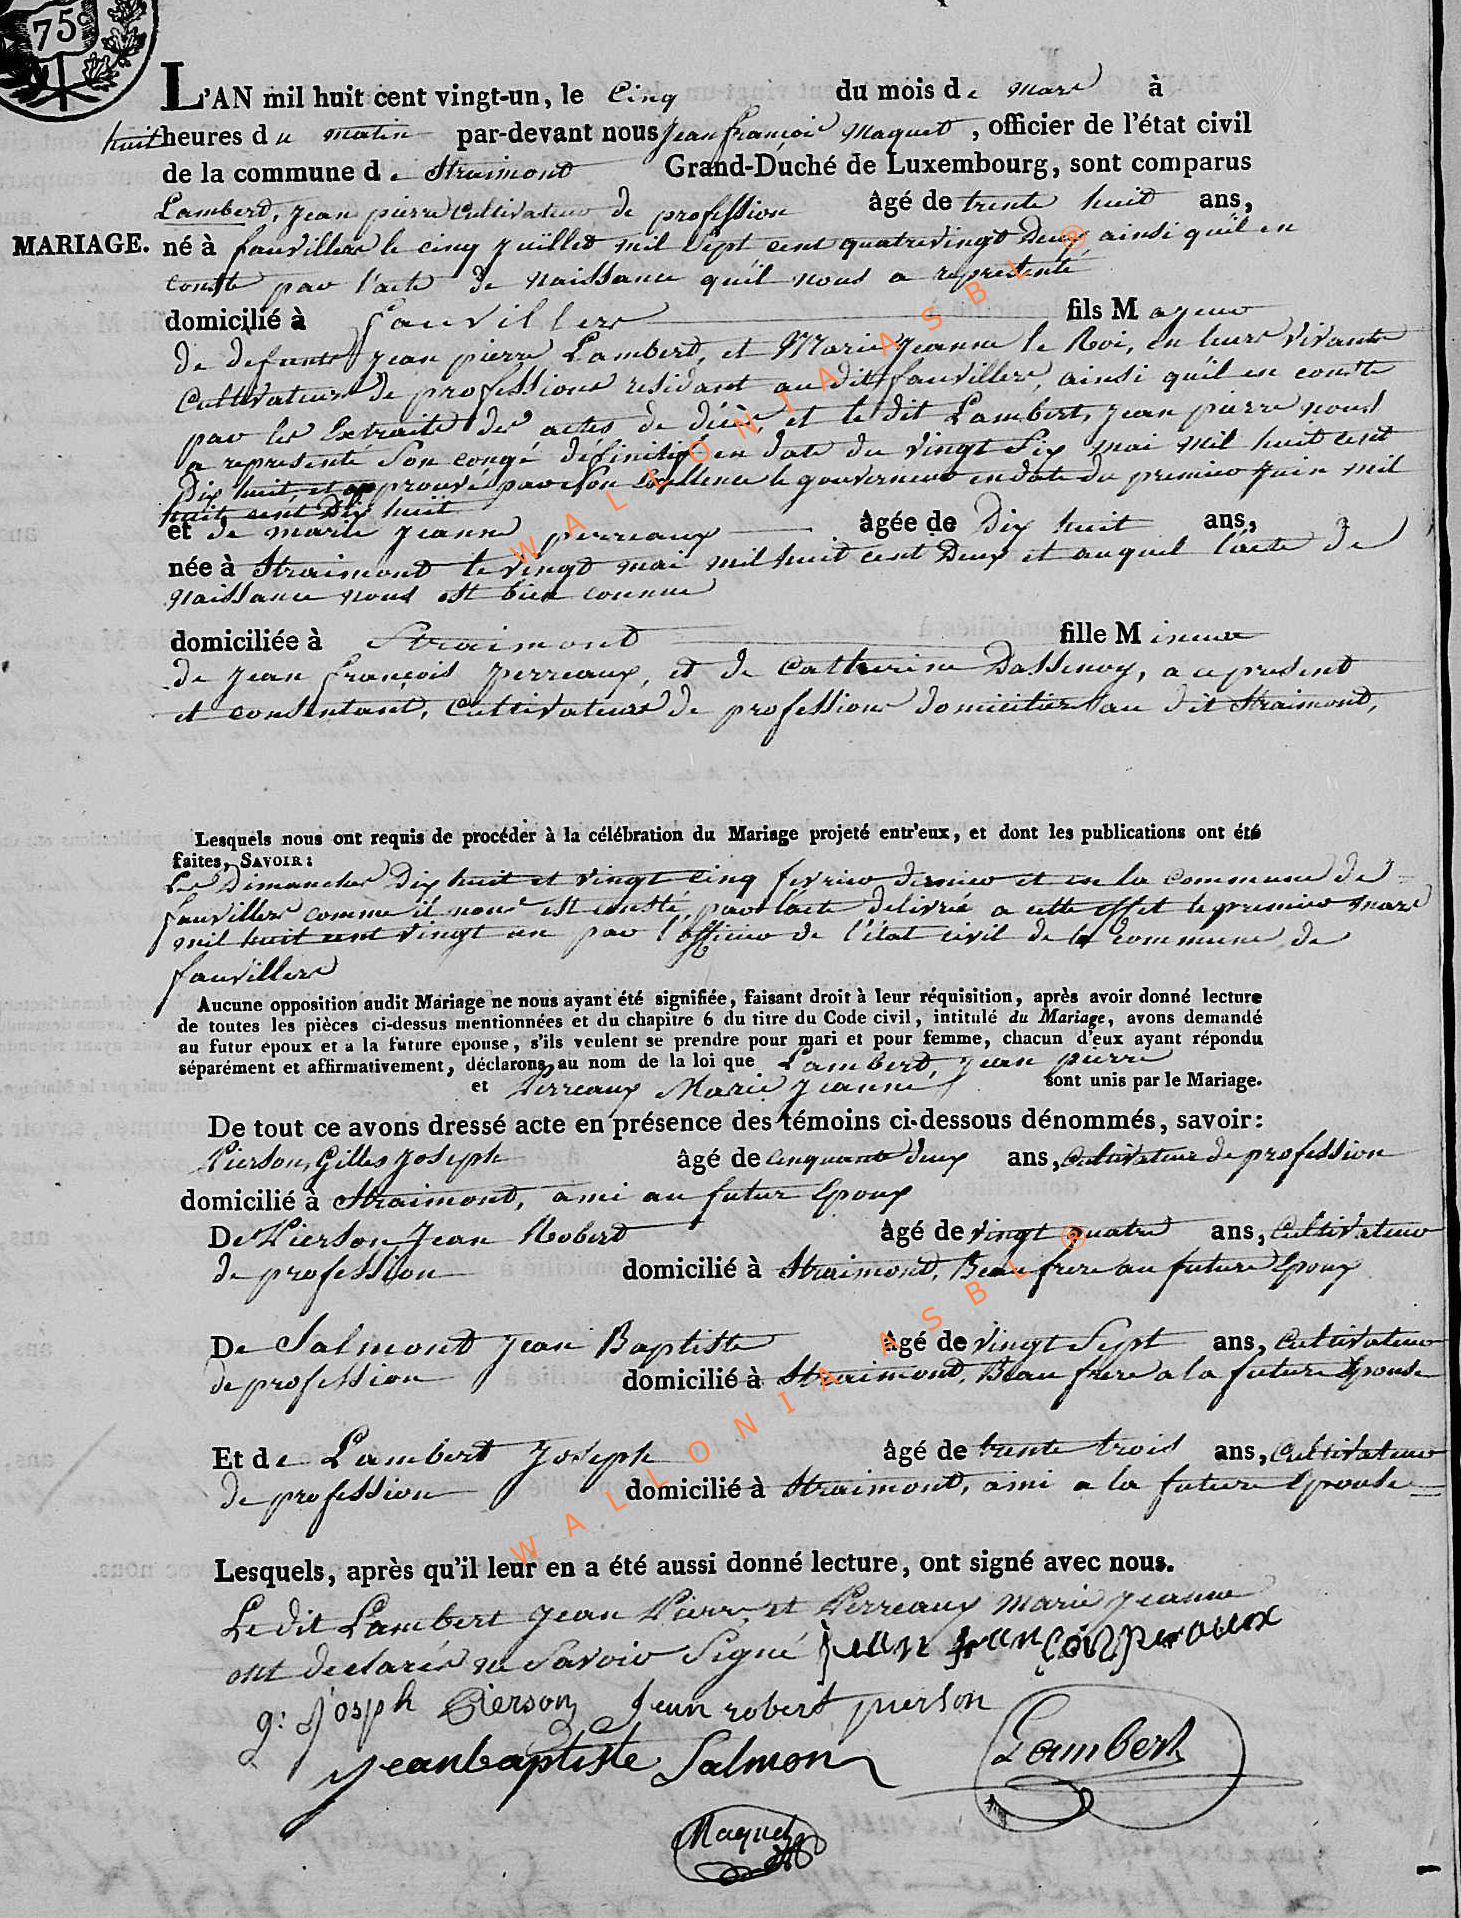 75c
L'AN mil huit cent vingt-un, le Cinq du mois de mars à
huit heures du matin par-devant nous Jean françois Maquet, officier de l'état civil
de la commune de Straimont Grand-Duché de Luxembourg, sont comparus
Lambert, Jean pierre Cultivateur de profession âgé de trente huit ans,
MARIAGE. né à fauvillers le cinq Juillet mil Sept cent quatrevingt Deux ainsi qu'il en
conste par l'acte de Naissance qu'il nous a representé
domicilié à fauvillers fils Majeur
de defunts Jean pierre Lambert, et Marie Jeanne le Roi, en leurs vivants
Cultivateurs de professions residant au dit fauvillers, ainsi qu'il en conste
par les Extraits des actes de décès, et le dit Lambert, Jean pierre nous
a representé Son congé définitif en date du vingt Six mai mil huit cent
Dix huit, et approuvé par son Exellence le gouverneur en date du premier Juin mil
huit cent Dix huit
et de marie Jeanne perreaux âgée de Dix huit ans,
née à Straimont le vingt mai mil huit cent Deux et auquel l'acte de
Naissance nous est bien connue
domiciliée à Straimont fille Mineure
de Jean françois perreaux, et de Catherine Dassenoy, a ce present
et consentant, Cultivateurs de professions domiciliés au dit Straimont,
Lesquels nous ont requis de procéder à la célébration du Mariage projeté entr'eux, et dont les publications ont été
faites, SAVOIR:
Les Dimanches Dix huit et vingt cinq fevrier dernier et en la commune de
fauvillers comme il nous est consté par l'acte delivrée a cette effet le premier mars
mil huit cent vingt un par l'officier de l'état civil de la commune de
fauvillers
Aucune opposition audit Mariage ne nous ayant été signifiée, faisant droit à leur réquisition, après avoir donné lecture
de toutes les pièces ci-dessus mentionnées et du chapitre 6 du titre du Code civil, intitulé du Mariage, avons demandé
au futur époux et à la future épouse, s'ils veulent se prendre pour mari et pour femme, chacun d'eux ayant répondu
séparément et affirmativement, déclarons au nom de la loi que Lambert, Jean pierre
et Perreaux Marie Jeanne sont unis par le Mariage.
De tout ce avons dressé acte en présence des témoins ci-dessous dénommés, savoir:
Pierson, Gilles Joseph âgé de cinquante deux ans, Cultivateur de profession
domicilié à Straimont, ami au futur Epoux
De Pierson Jean Robert âgé de vingt quatre ans, Cultivateur
de profession domicilié à Straimont, Beau frere au future Epoux
De Salmont Jean Baptiste âgé de vingt Sept ans, Cultivateur
de profession domicilié à Straimont, Beau frere a la future Epouse
Et de Lambert Joseph âgé de trente trois ans, Cultivateur
de profession domicilié à Straimont, ami a la future Epouse
Lesquels, après qu'il leur en a été aussi donné lecture, ont signé avec nous.
Le dit Lambert Jean Pierre et Perreaux Marie Jeanne
ont declarés ne Savoir Signé Jean françois peraux
g: Josph Pierson Jean robert pierson
Jeanbaptiste Salmon Lambert
Maquet
WALLONIA ASBL ®
WALLONIA ASBL ®